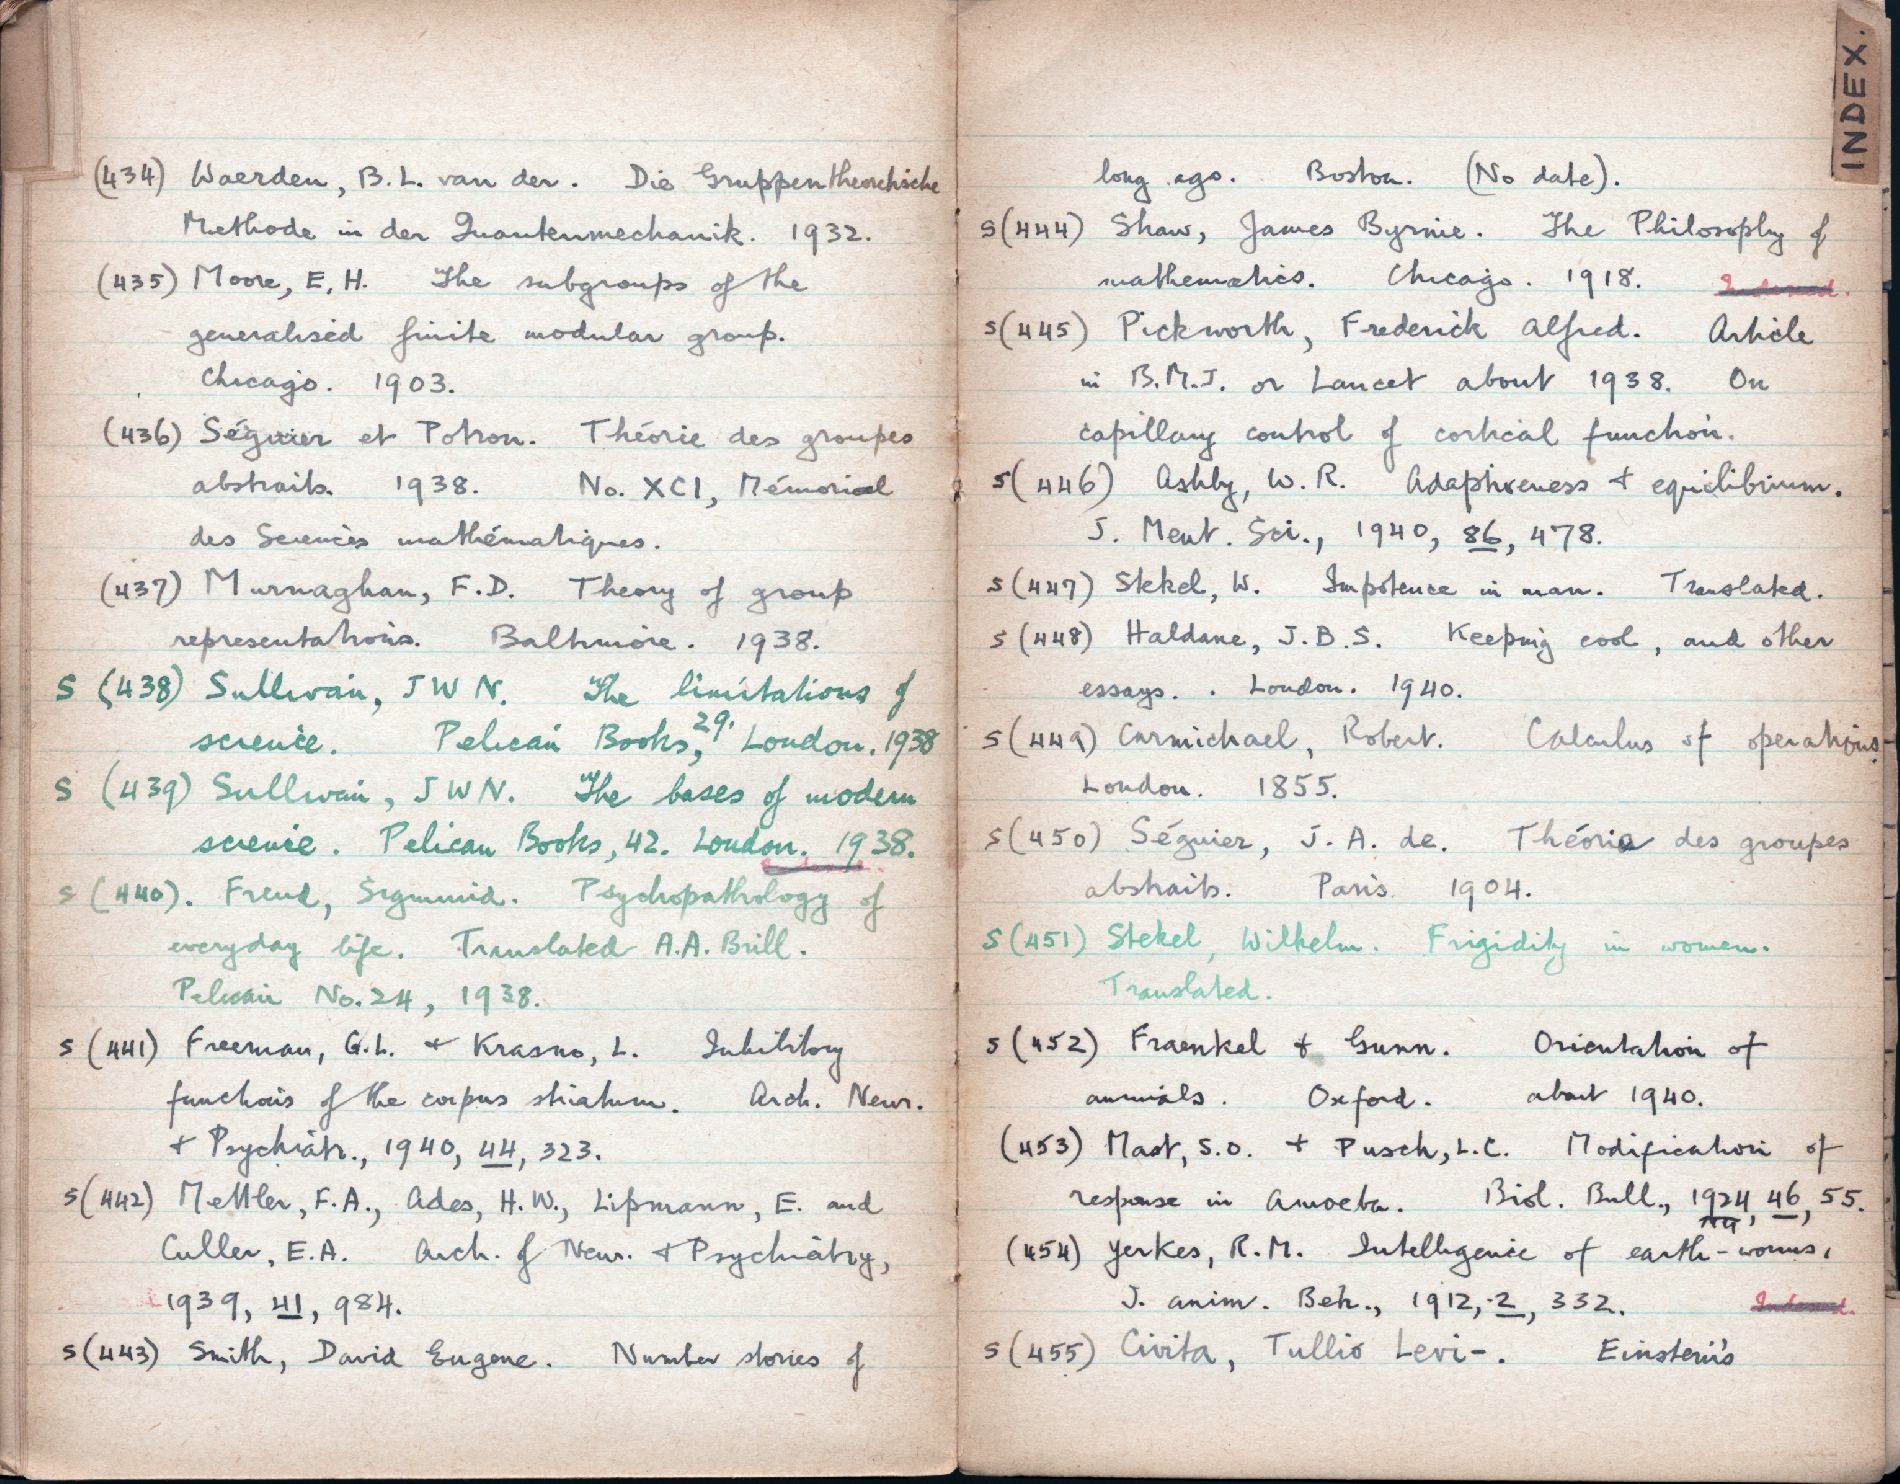 (434) Waerden, B.L. van der. Die Gruppentheoretische
Methode in der Quantenmechanik. 1932.
(435) Moore, E, H. The subgroups of the
generalised finite modular group.
Chicago. 1903.
(436) Séguier et Potron. Théorie des groupes
abstraits. 1938. No. XCI, Mémorial
des Sciences mathématiques.
(437) Murnaghan, F.D. Theory of group
representations. Baltimore. 1938.
S (438) Sullivan, J W N. The limitations of
science. Pelican Books, 29. London. 1938
S (439) Sullivan, J W N. The bases of modern
science. Pelican Books, 42. London. 1938.
S (440). Freud, Sigmund. Psychopathology of
everyday life. Translated A.A. Brill.
Pelican No. 24, 1938.
S (441) Freeman, G.L. + Krasno, L. Inhibitory
functions of the corpus striatum. Arch. Neur.
+ Psychiatr., 1940, 44, 323.
S (442) Mettler, F.A., Ades, H.W., Lipmann, E. and
Culler, E.A. Arch. of Neur. + Psychiatry,
1939, 41, 984.
S (443) Smith, David Eugene. Number stories of
INDEX.
long ago. Boston. (No date).
S (444) Shaw, James Byrnie. The Philosophy of
mathematics. Chicago. 1918. Indexed.
S (445) Pickworth, Frederick Alfred. Article
in B.M.J. or Lancet about 1938. On
capillary control of cortical function.
S (446) Ashby, W.R. Adaptiveness + equilibrium.
J. Ment. Sci., 1940, 86, 478.
S (447) Stekel, W. Impotence in man. Translated.
S (448) Haldane, J.B.S. Keeping cool, and other
essays. . London. 1940.
S (449) Carmichael, Robert. Calculus of operations.
London. 1855.
S (450) Séguier, J. A. de. Théorie des groupes
abstraits. Paris 1904.
S (451) Stekel, Wilhelm. Frigidity in women.
Translated.
S (452) Fraenkel & Gunn. Orientation of
animals. Oxford. about 1940.
(453) Mast, S.O. + Pusch, L.C. Modification of
response in Amoeba. Biol. Bull., 1924, 46, 55.
(454) Yerkes, R.M. Intelligence of earth-worms,
J. anim. Beh., 1912, 2, 332. Indexed.
S (455) Civita, Tullio Levi-. Einstein's